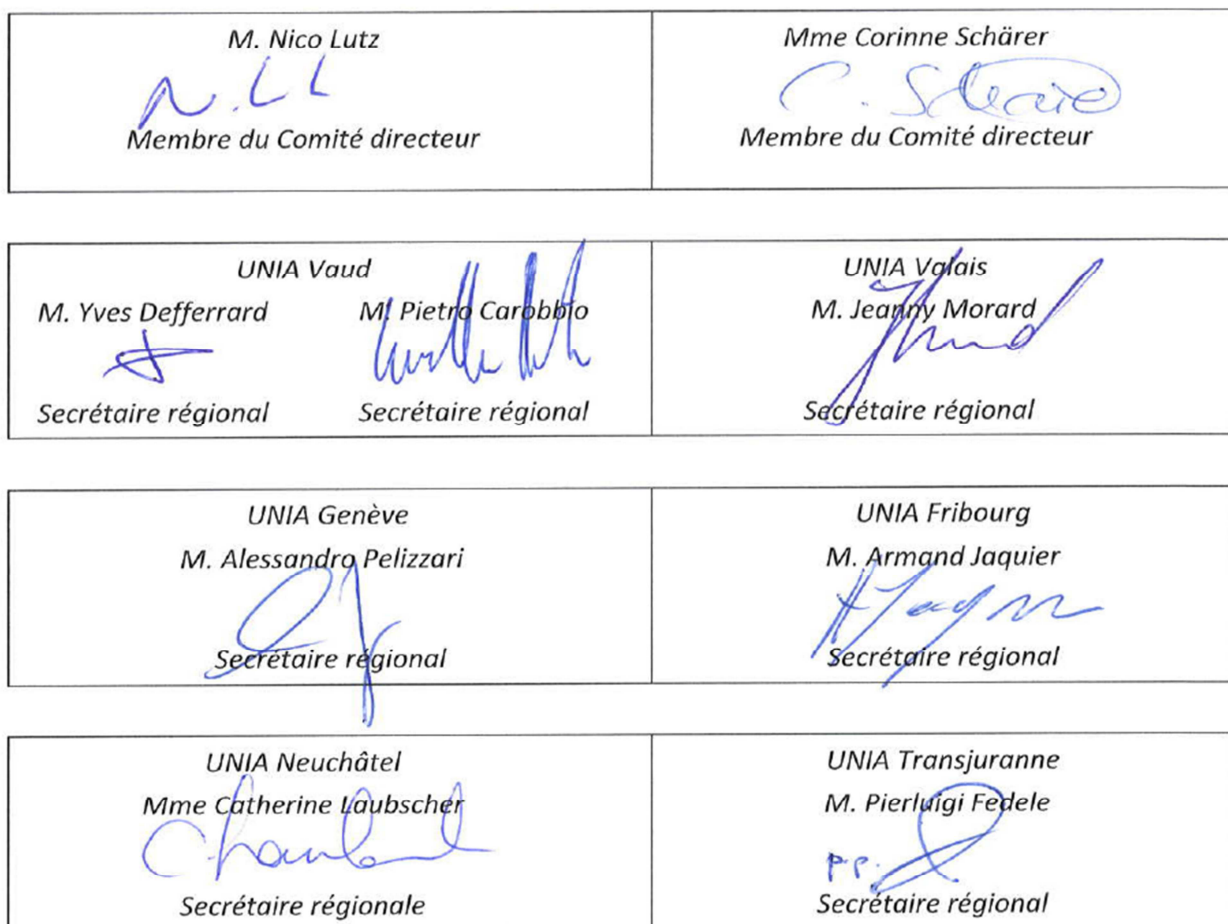 M. Nico Lutz
N. L L
Membre du Comité directeur
Mme Corinne Schärer
C. Schärer
Membre du Comité directeur
UNIA Vaud
M. Yves Defferrard M. Pietro Carobbio
Secrétaire régional Secrétaire régional
UNIA Valais
M. Jeanny Morard
Secrétaire régional
UNIA Genève
M. Alessandro Pelizzari
Secrétaire régional
UNIA Fribourg
M. Armand Jaquier
Secrétaire régional
UNIA Neuchâtel
Mme Catherine Laubscher
Secrétaire régionale
UNIA Transjuranne
M. Pierluigi Fedele
p.p.
Secrétaire régional